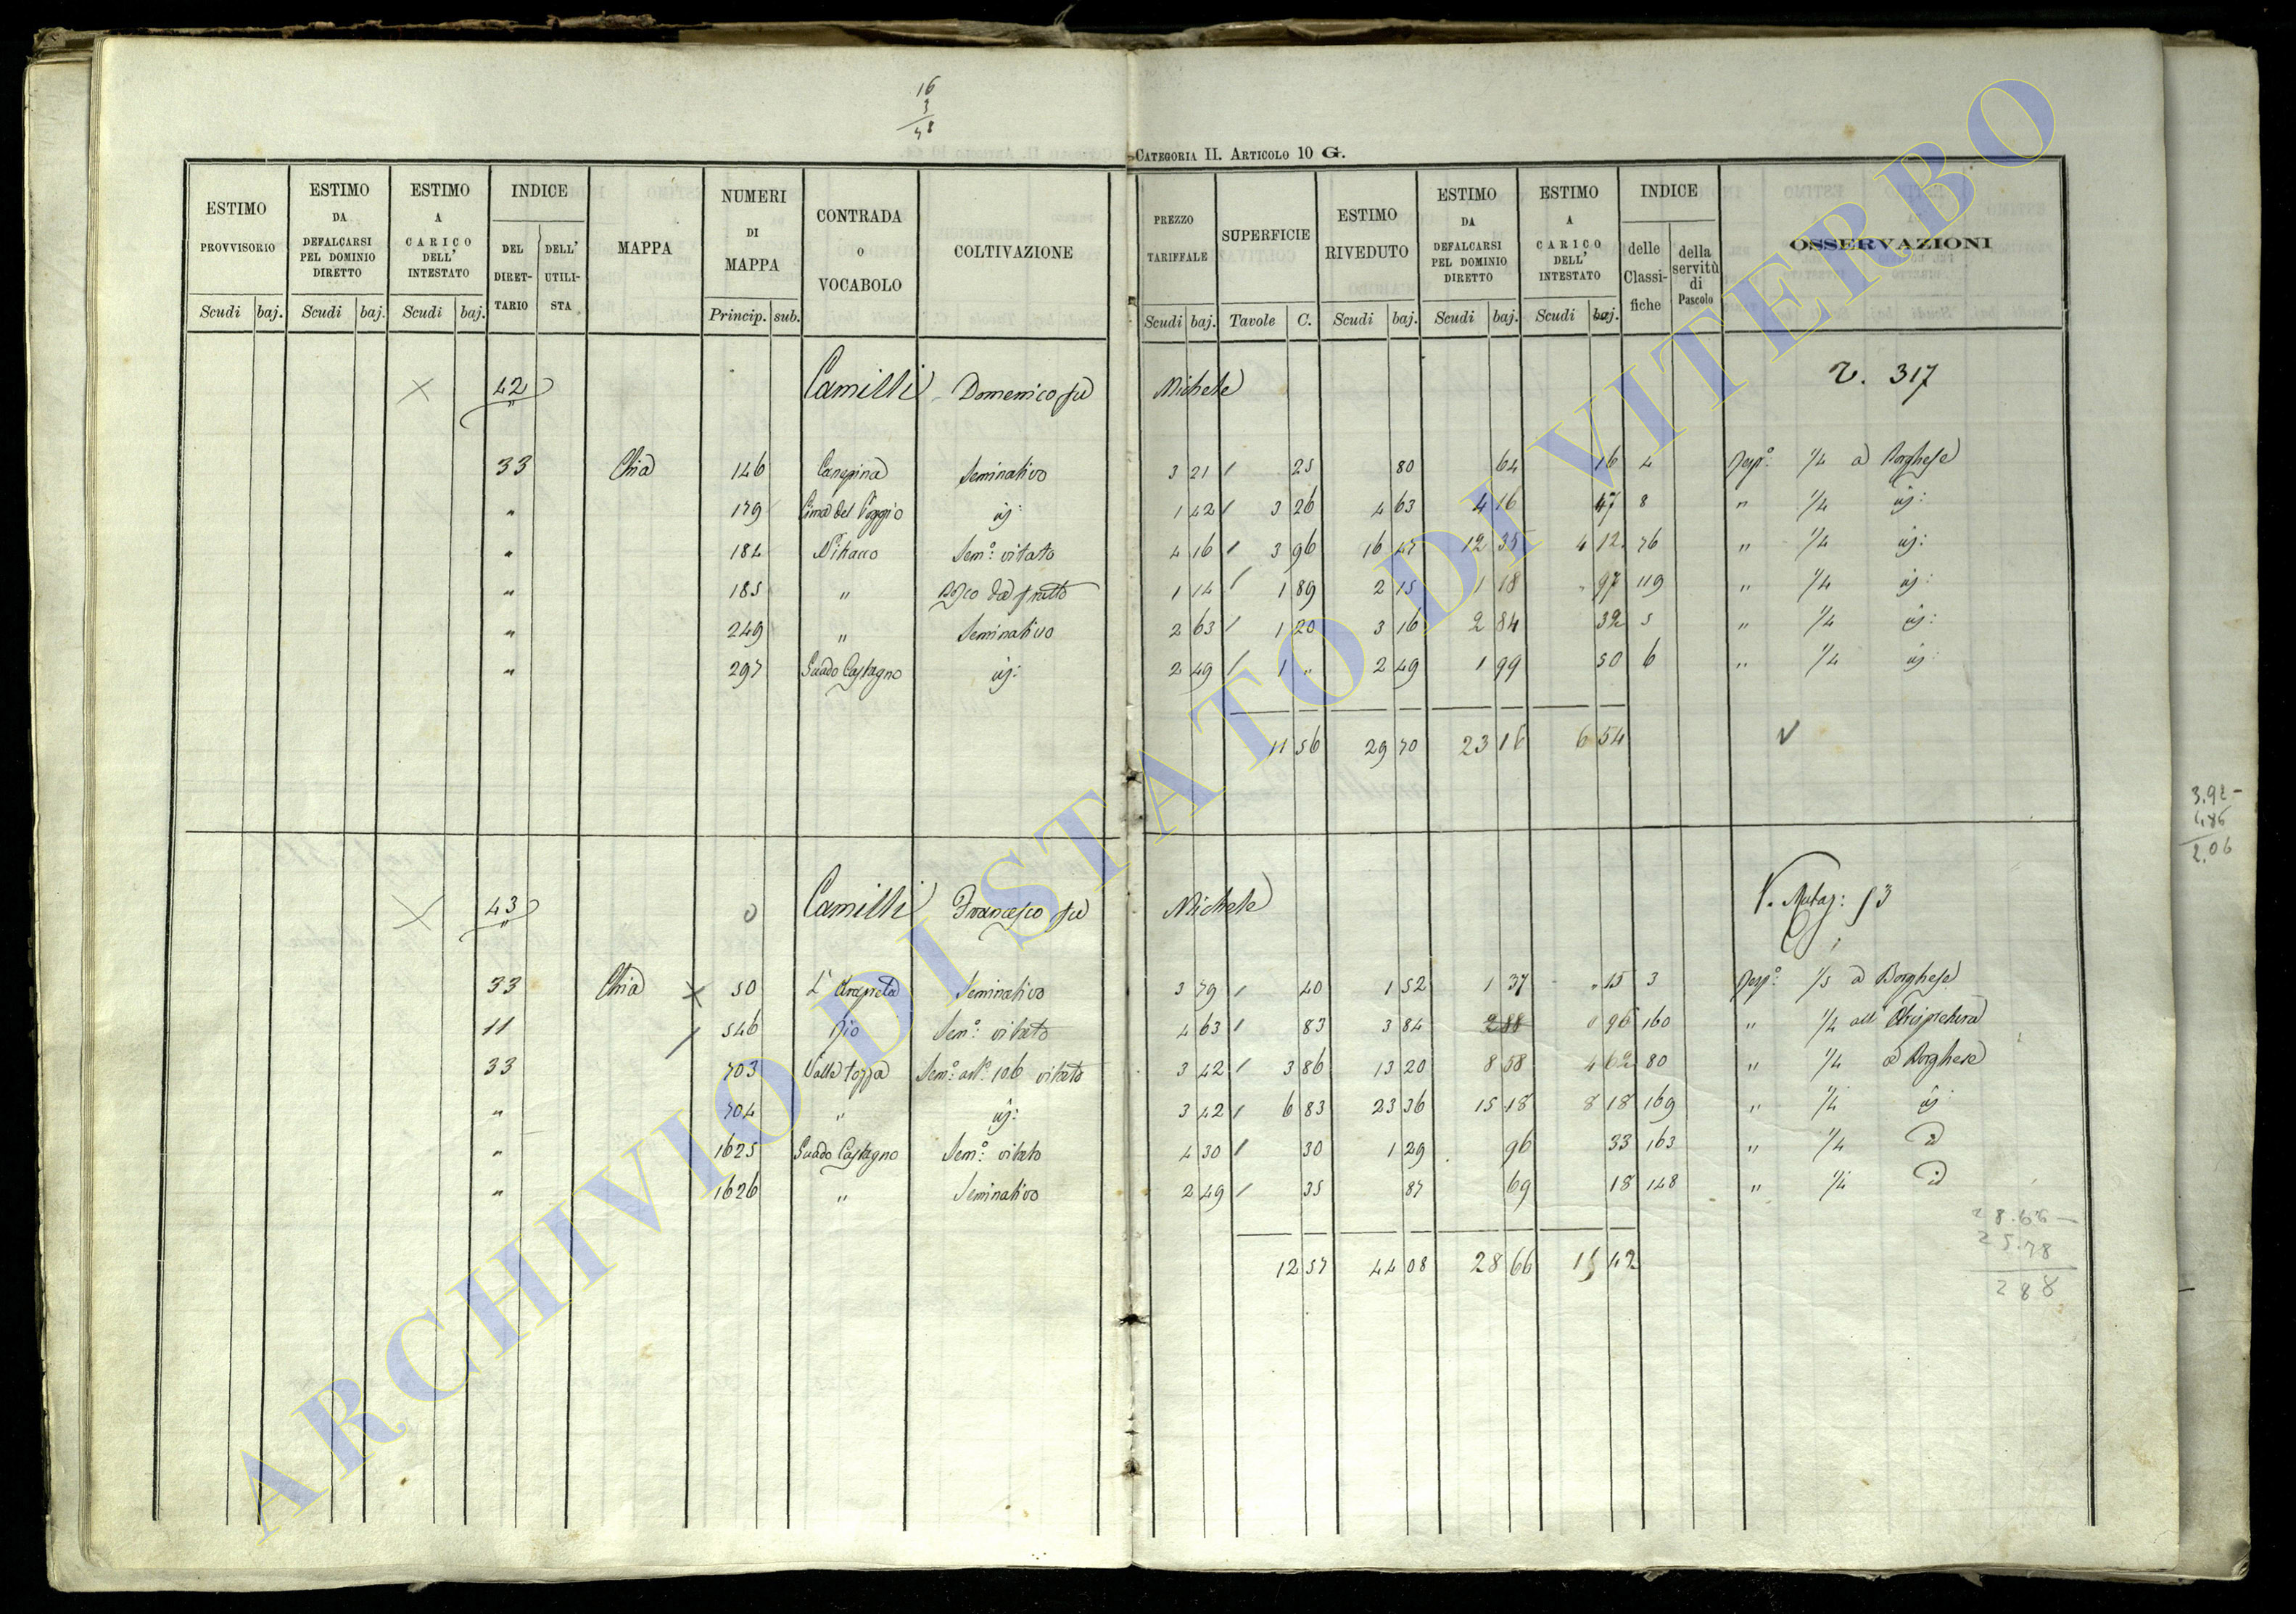 16
3
48
CATEGORIA II. ARTICOLO 10 G.
ESTIMO PROVVISORIO Scudi baj. ESTIMO DA DEFALCARSI PEL DOMINIO DIRETTO Scudi baj. ESTIMO A CARICO DELL' INTESTATO Scudi baj. INDICE DEL DIRETTARIO DELL' UTILISTA MAPPA NUMERI DI MAPPA Princip. sub. CONTRADA o VOCABOLO COLTIVAZIONE PREZZO TARIFFALE Scudi baj. SUPERFICIE Tavole C. ESTIMO RIVEDUTO Scudi baj. ESTIMO DA DEFALCARSI PEL DOMINIO DIRETTO Scudi baj. ESTIMO A CARICO DELL' INTESTATO Scudi baj. INDICE delle Classifiche della servitù di Pascolo OSSERVAZIONI
42 Camilli Domenico fu Michele 317
33 Chia 146 Canepina Seminativo 3 21 25 80 64 16 4 Risp.° 1/4 a Borghese
" 179 Cima del Poggio id: 1 42 3 26 4 63 4 16 47 8 " 1/4 id:
" 184 Sem.° vitato 4 16 3 96 16 47 12 35 4 12 76 " 1/4 id:
" 185 " Bosco da frutto 1 14 1 89 2 15 1 18 " 97 119 " 1/4 id:
" 249 " Seminativo 2 63 1 20 3 16 2 84 32 5 " 1/4 id:
" 297 Guado Castagno id: 2 49 1 " 2 49 1 99 50 6 " 1/4 id:
11 56 29 70 23 16 6 54
43 Camilli Francesco fu Michele V. 53
33 Chia 50 Seminativo 3 79 40 1 52 1 37 " 15 3 Risp.° 1/5 a Borghese
11 546 Rio Sem.° vitato 4 63 83 3 84 2 88 0 96 160 " 1/4 all' Arcipretura
33 703 Valle Sem.° vitato 3 42 3 86 13 20 8 58 4 62 80 " 1/4 a Borghese
" 704 " id: 3 42 6 83 23 36 15 18 8 18 169 " 1/4 id
" 1625 Guado Castagno Sem.° vitato 4 30 30 1 29 96 33 163 " 1/4 id
" 1626 " Seminativo 2 49 35 87 69 18 148 " 1/4 id
12 57 44 08 28 66 15 42
28.66
25.78
288
3.92
4.86
2.06
ARCHIVIO DI STATO DI VITERBO